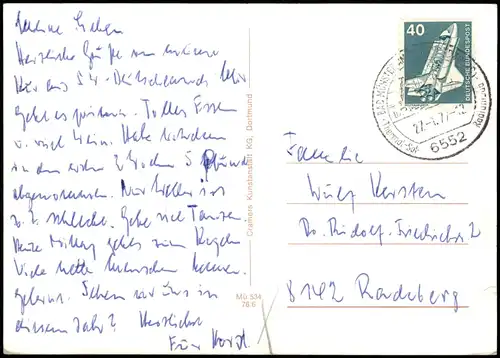 Meine Lieben
Herzliche Grüße von meiner
Kur aus S W-Deutschland. Mir
geht es prima. Tolles Essen
u. viel Wein. Habe trotzdem
in den ersten 2 Wochen 5 Pfund
abgenommen. Nur Wetter ist
z. Z. schlecht. Gehe viel Tanzen
Heute Mittag gehts zum Kegeln
Viele nette Menschen kennen
gelernt. Sehen wir uns in
diesem Jahr? Herzlichst
Eur Horst
Cramers Kunstanstalt KG, Dortmund
Mü 534
76 6
40
DEUTSCHE BUNDESPOST
BAD MÜNSTER
27.-5.77-12
6552
Familie
Wulf Kersten
Dr. Rudolf-Friedrichs 2
8142 Radeberg